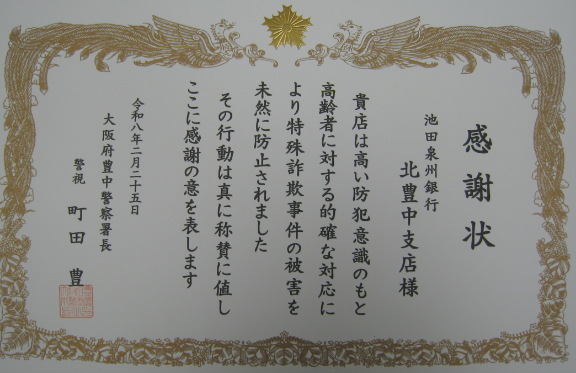 感謝状
池田泉州銀行
北豊中支店様
貴店は高い防犯意識のもと
高齢者に対する的確な対応に
より特殊詐欺事件の被害を
未然に防止されました
その行動は真に称賛に値し
ここに感謝の意を表します
令和八年二月二十五日
大阪府豊中警察署長
警視 町田豊